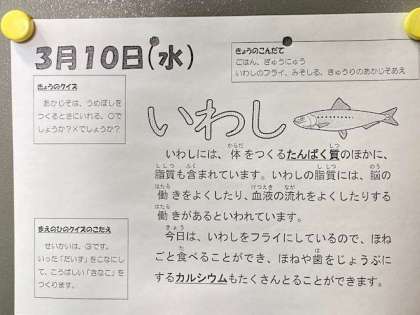 3月10日(水)
きょうのこんだて
ごはん、ぎゅうにゅう
いわしのフライ、みそしる、きゅうりのあかじそあえ
きょうのクイズ
あかじそは、うめぼしを
つくるときにいれる。○で
しょうか?×でしょうか?
いわし
いわしには、体をつくるたんぱく質のほかに、
脂質も含まれています。いわしの脂質には、脳の
働きをよくしたり、血液の流れをよくしたりする
働きがあるといわれています。
今日は、いわしをフライにしているので、ほね
ごと食べることができ、ほねや歯をじょうぶに
するカルシウムもたくさんとることができます。
まえのひのクイズのこたえ
せいかいは、③です。
いった「だいず」をこなにし
て、こうばしい「きなこ」を
つくります。